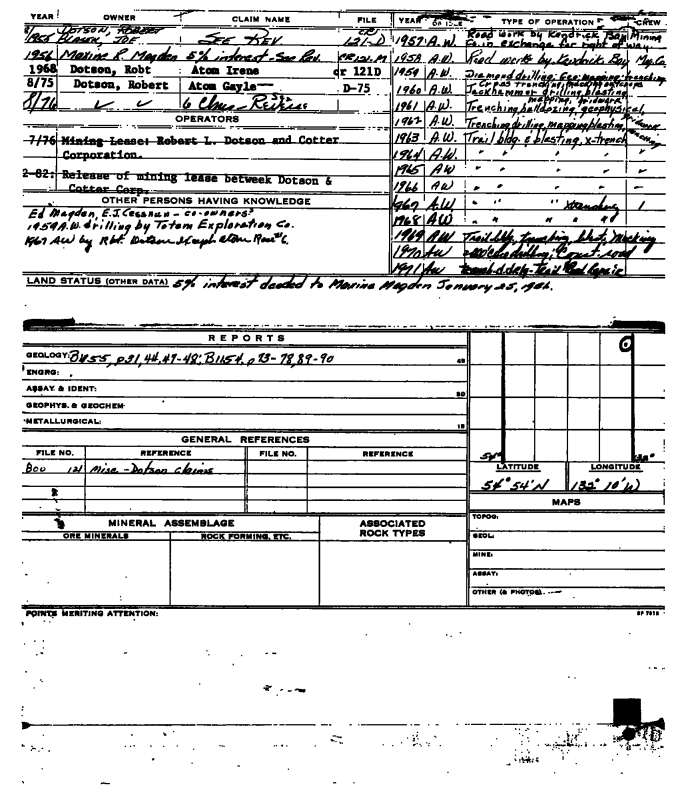 YEAR OWNER CLAIM NAME FILE
DOTSON, ROBERT CR
1955 BLASEK, JOE SEE REV 121-D
1956 Maxine R Magden 5% interest - See Rev. CR 121-M
1968 Dotson, Robt Atom Irene cr 121D
8/75 Dotson, Robert Atom Gayle D-75
8/76 6 Clms
OPERATORS
7/76 Mining Lease: Robert L. Dotson and Cotter
Corporation.
2-82: Release of mining lease betweek Dotson &
Cotter Corp.
OTHER PERSONS HAVING KNOWLEDGE
Ed Magden, E.J. - co-owners
1959 A.W. drilling by Totem Exploration Co.
1967 AW by Rbt. Dotson
YEAR TYPE OF OPERATION CREW
1957 A.W. Road work by Kendrick Bay Mining
Co. in exchange for right of way
1958 A.W. Road work by Kendrick Bay Mng. Co.
1959 A.W. Diamond drilling, Geo. mapping, trenching
1960 A.W. Jackhammer drilling, blasting
mapping,
1961 A.W. Trenching bulldozing, geophysical,
1962 A.W. Trenching drilling, mapping blasting,
1963 A.W. Trail bldg. & blasting, x-trench
1964 A.W. " " " "
1965 AW " " " "
1966 AW " " " "
1967 A.W. " " 1
1968 AW " " "
1969 AW Trail bldg, trenching, blast, Mucking
1970 AW
1971 AW
LAND STATUS (OTHER DATA) 5% interest deeded to Maxine Magden January 25, 1956.
REPORTS
GEOLOGY: B1155, p21, 44, 47-48; B1154, p 73-78, 89-90
ENGRG:
ASSAY. & IDENT:
GEOPHYS. & GEOCHEM
METALLURGICAL:
GENERAL REFERENCES
FILE NO. REFERENCE FILE NO. REFERENCE
Bou 121 Misc - Dotson claims
54° 132°
LATITUDE LONGITUDE
54° 54' N 132° 10' W
MAPS
TOPOG:
GEOL:
MINE:
ASSAY:
OTHER (& PHOTOS)
MINERAL ASSEMBLAGE ASSOCIATED
ROCK TYPES
ORE MINERALS ROCK FORMING, ETC.
POINTS MERITING ATTENTION: